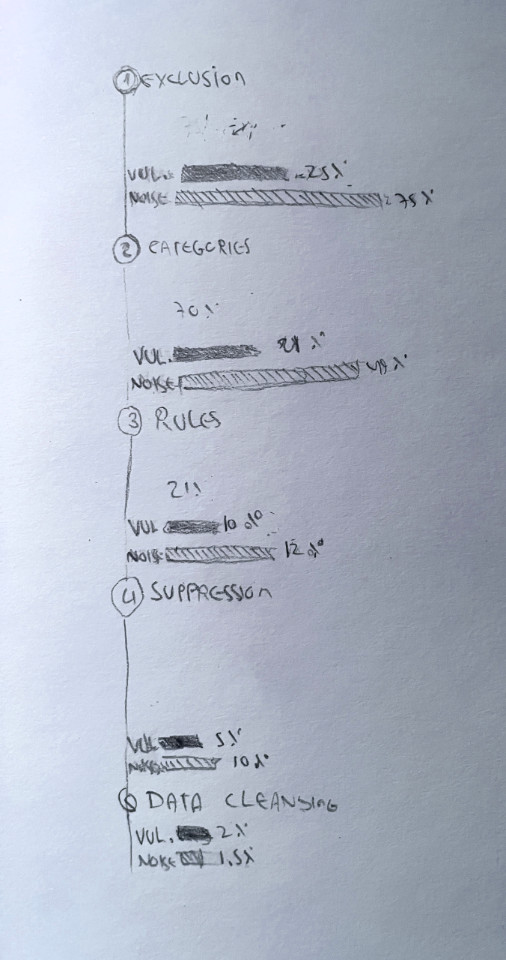 1 EXCLUSION
VUL. 25%
NOISE 75%
2 CATEGORIES
70%
VUL. 21%
NOISE 49%
3 RULES
21%
VUL 10%
NOISE 12%
4 SUPPRESSION
VUL 5%
NOISE 10%
DATA CLEANSING
VUL. 2%
NOISE 1.5%